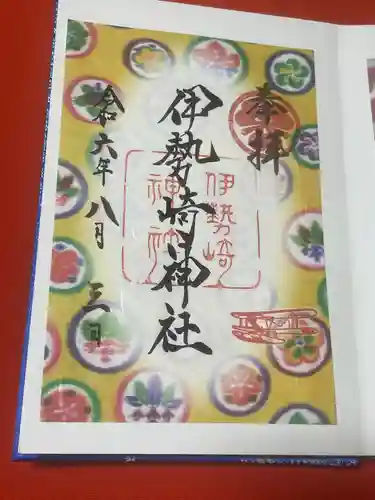 奉拝
伊勢崎神社
伊勢崎
神社
令和六年八月三日